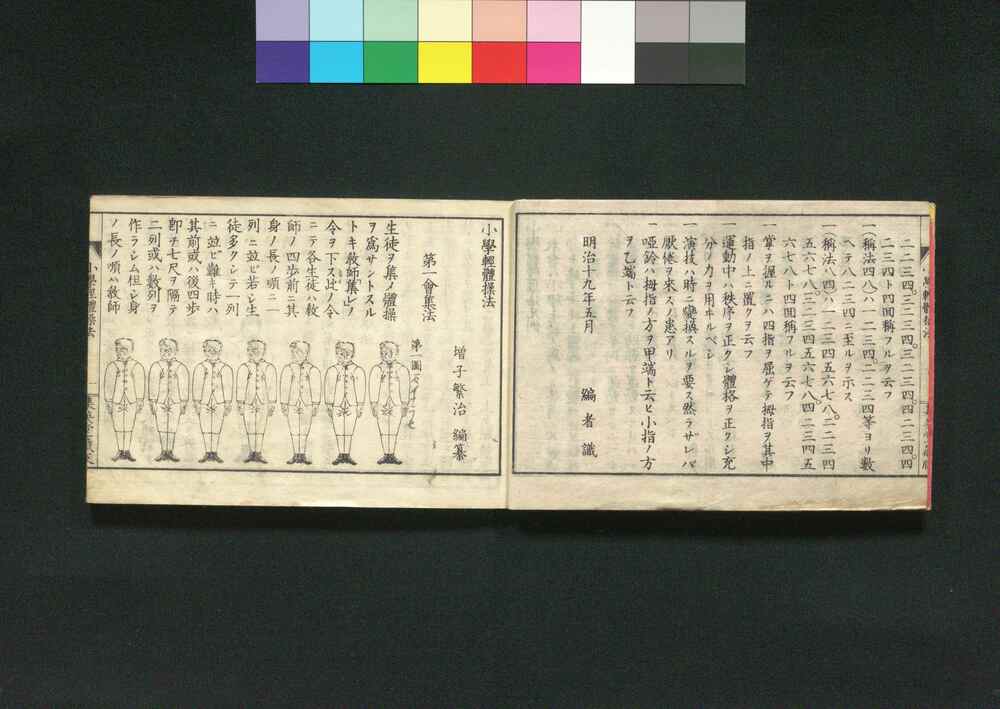 二二三四。三二三四。四二三四。四
二三四ト四囬稱フルヲ云フ
一(稱法四八)ハ一二三四。二二三四等ヨリ數
ヘテ八二三四ニ至ルヲ示ス
一(稱法八四)ハ一二三四五六七八。二二三四
五六七八。三二三四五六七八。四二三四五
六七八ト四囬稱フルヲ云フ
一掌ヲ握ルニハ四指ヲ屈ゲテ拇指ヲ其中
指ノ上ニ置クヲ云フ
一運動中ハ秩序ヲ正クシ體格ヲ正クシ充
分ノ力ヲ用ヰルベシ
一演技ハ時ニ變換スルヲ要ス然ラザレバ
厭倦ヲ來スノ患アリ
一啞鈴ハ拇指ノ方ヲ甲端ト云ヒ小指ノ方
ヲ乙端ト云フ
明治十九年五月
編者識
小學輕體操法
增子繁治 編纂
第一會集法
生徒ヲ集メ體操
ヲ爲サントスル
トキ教師集レノ
令ヲ下ス此ノ令
ニテ各生徒ハ教
師ノ四歩前ニ其
身ノ長ノ順ニ一
列ニ竝ビ若シ生
徒多クシテ一列
ニ竝ビ難キ時ハ
其前或ハ後四歩
卽チ七尺ヲ隔テ
二列或ハ數列ヲ
作ラシム但シ身
ノ長ノ順ハ教師
第一圖
小學輕體操法